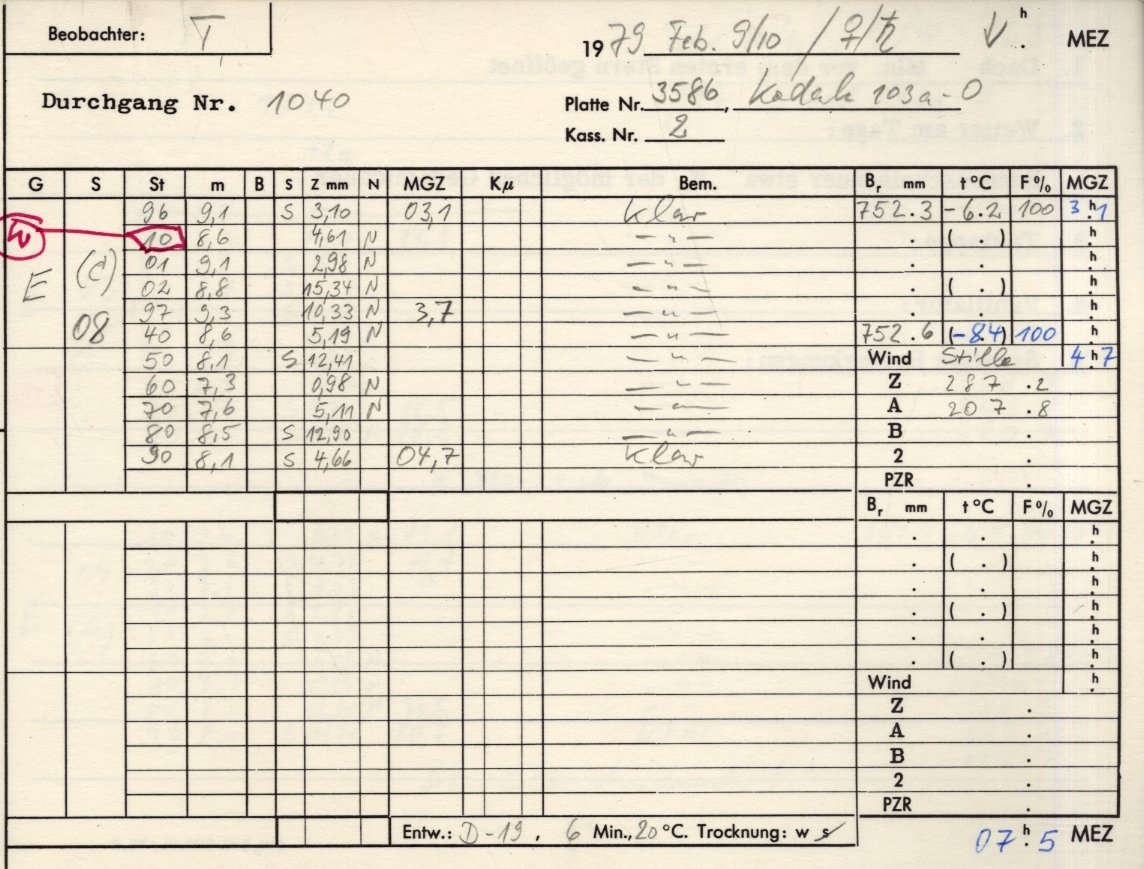 Beobachter: T
1979 Feb. 9/10 / ♀/♄ h. MEZ
Durchgang Nr. 1040
Platte Nr. 3586, Kodak 103a-O
Kass. Nr. 2
G S St m B S Z mm N MGZ Kμ Bem. Br mm t°C F% MGZ
96 9,1 S 3,10 03,1 Klar 752.3 -6.2 100 3h.1
10 8,6 4,61 N —"— . ( . ) h.
E (d) 01 9,1 2,98 N —"— . . h.
02 8,8 15,34 N —"— . ( . ) h.
08 97 9,3 10,33 N 3,7 —"— . . h.
40 8,6 5,19 N —"— 752.6 (-8.4) 100 h
50 8,1 S 12,41 —"— Wind Stille 4h.7
60 7,3 0,98 N —"— Z 287.2
70 7,6 5,11 N —"— A 207.8
80 8,5 S 12,90 —"— B .
90 8,1 S 4,66 04,7 Klar 2 .
PZR .
Br mm t°C F% MGZ
. . h.
. ( . ) h.
. . h.
. ( . ) h.
. . h.
. ( . ) h.
Wind h.
Z .
A .
B .
2 .
PZR .
Entw.: D-19, 6 Min., 20°C. Trocknung: w s
07h.5 MEZ